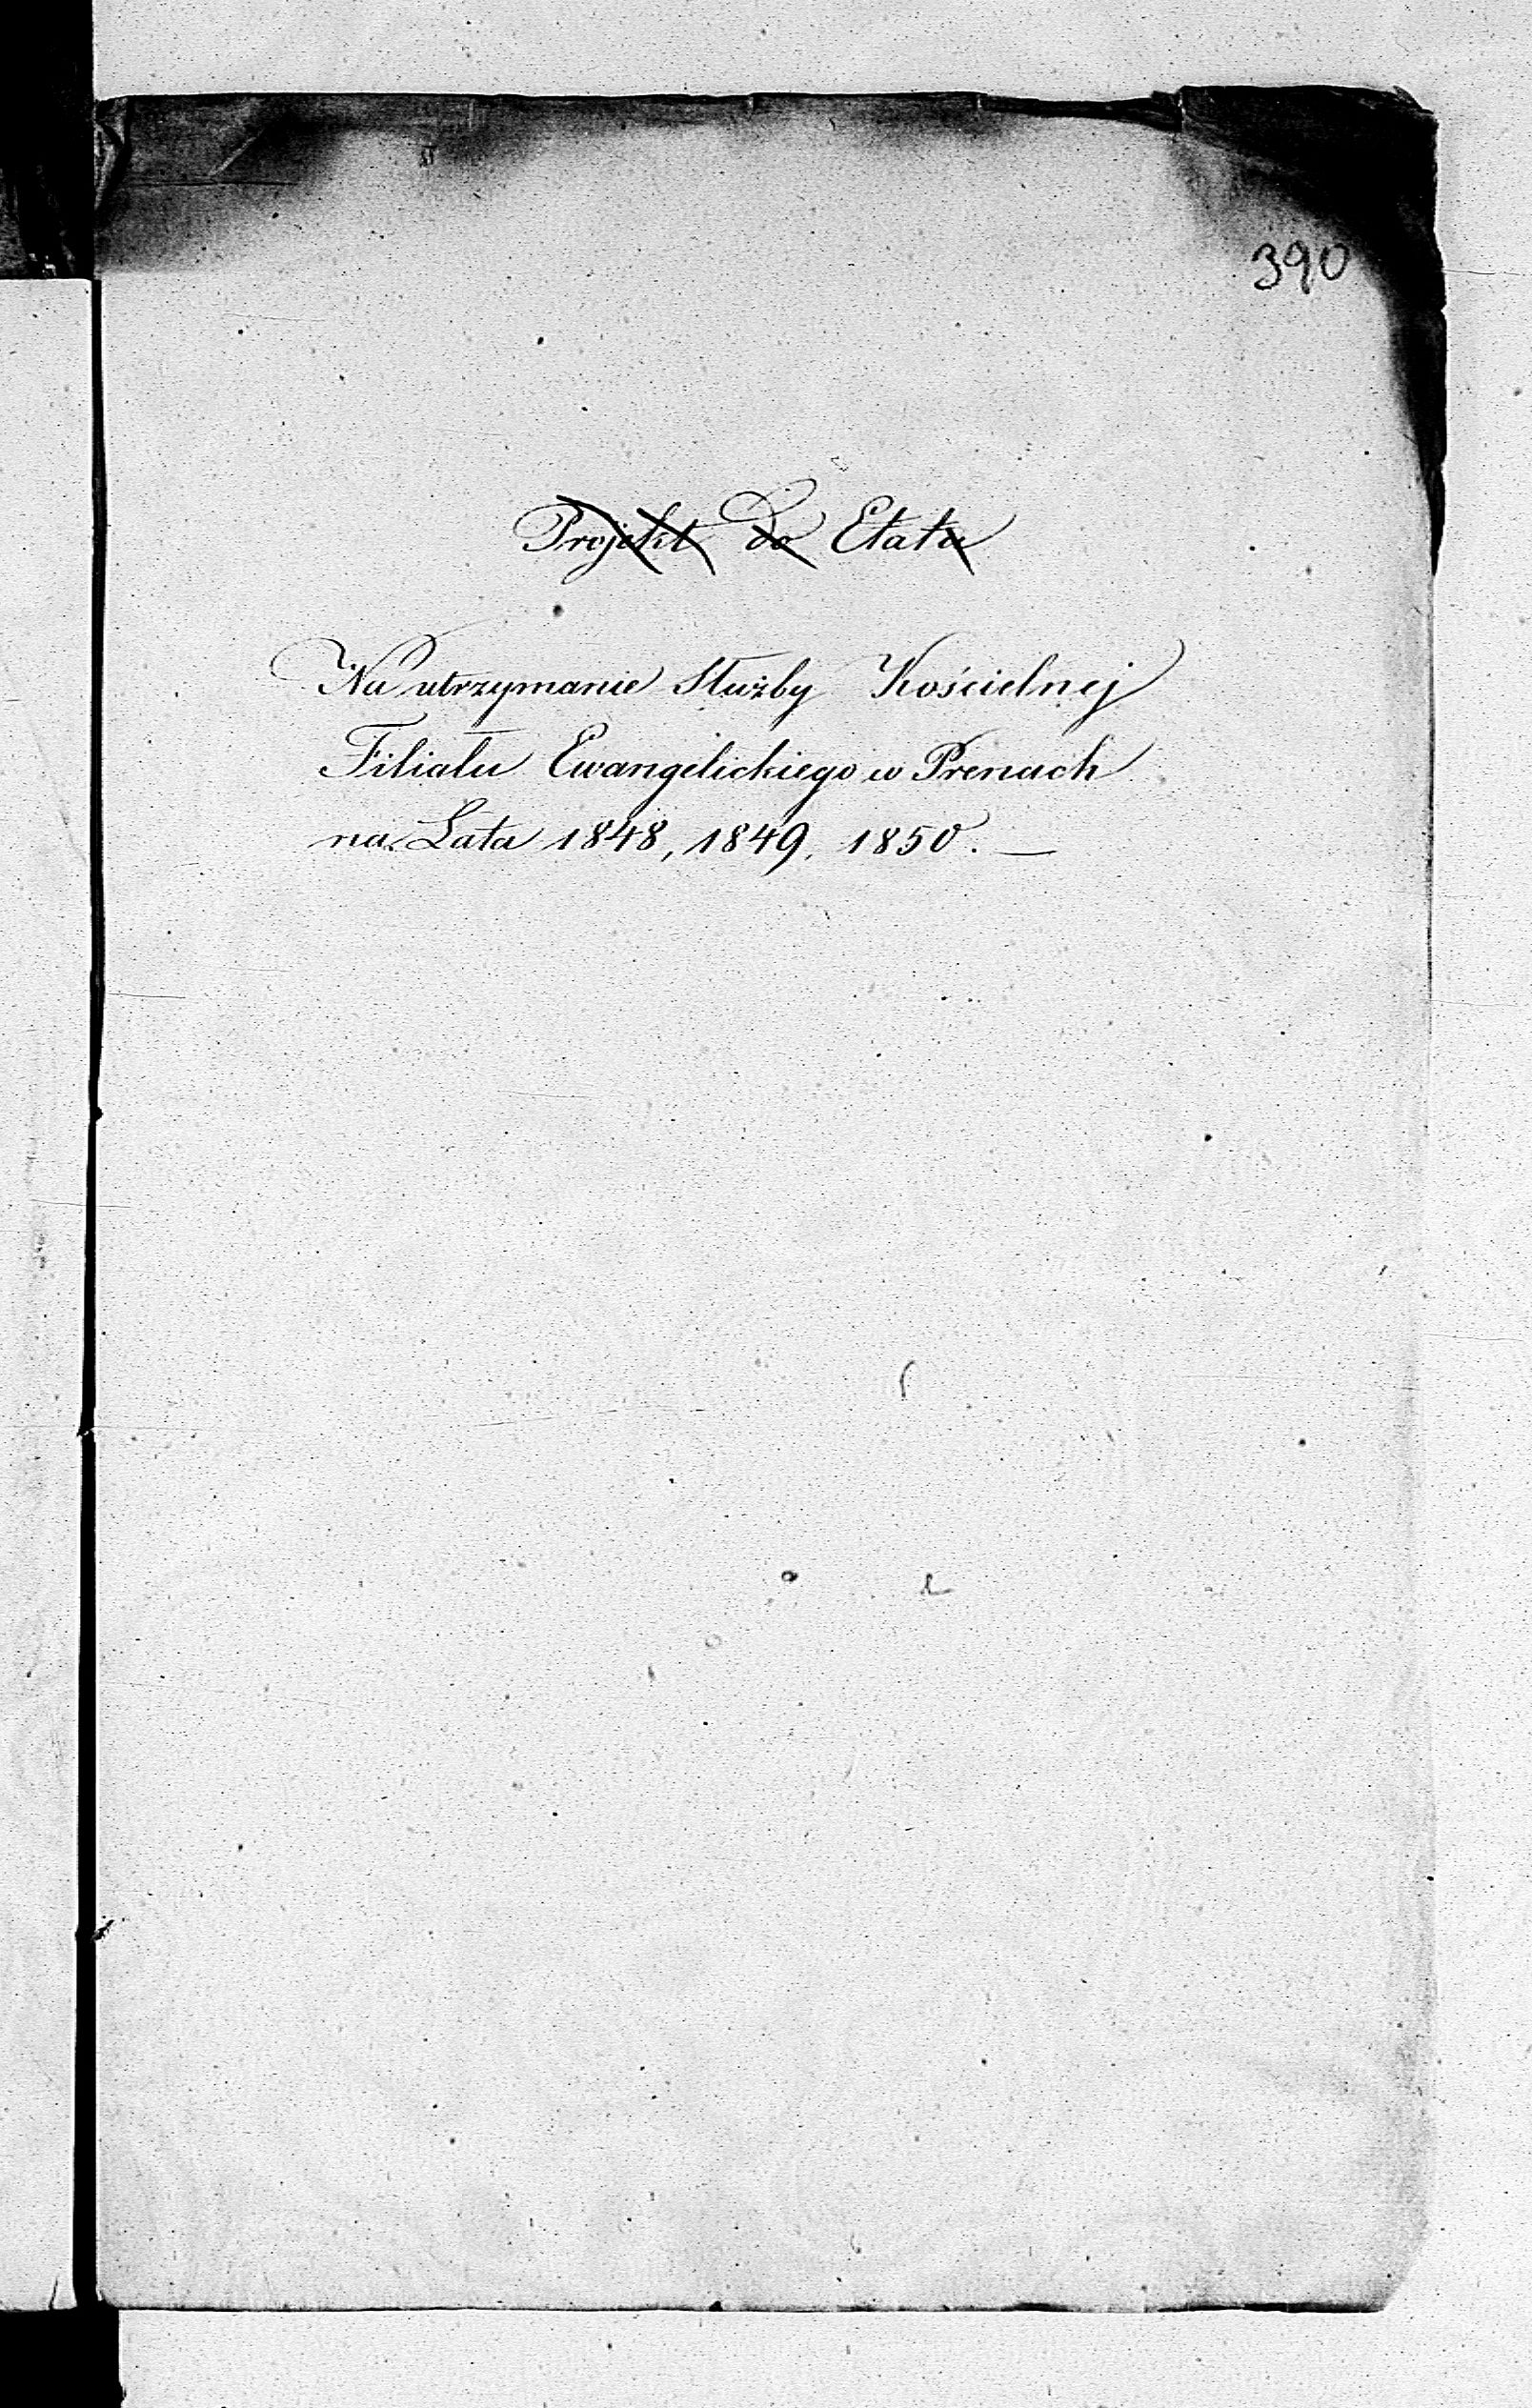 390
Projekt do Etatu
Na utrzymanie Służby Kościelnej
Filiału Ewangelickiego w Prenach
na Lata 1848, 1849, 1850. —